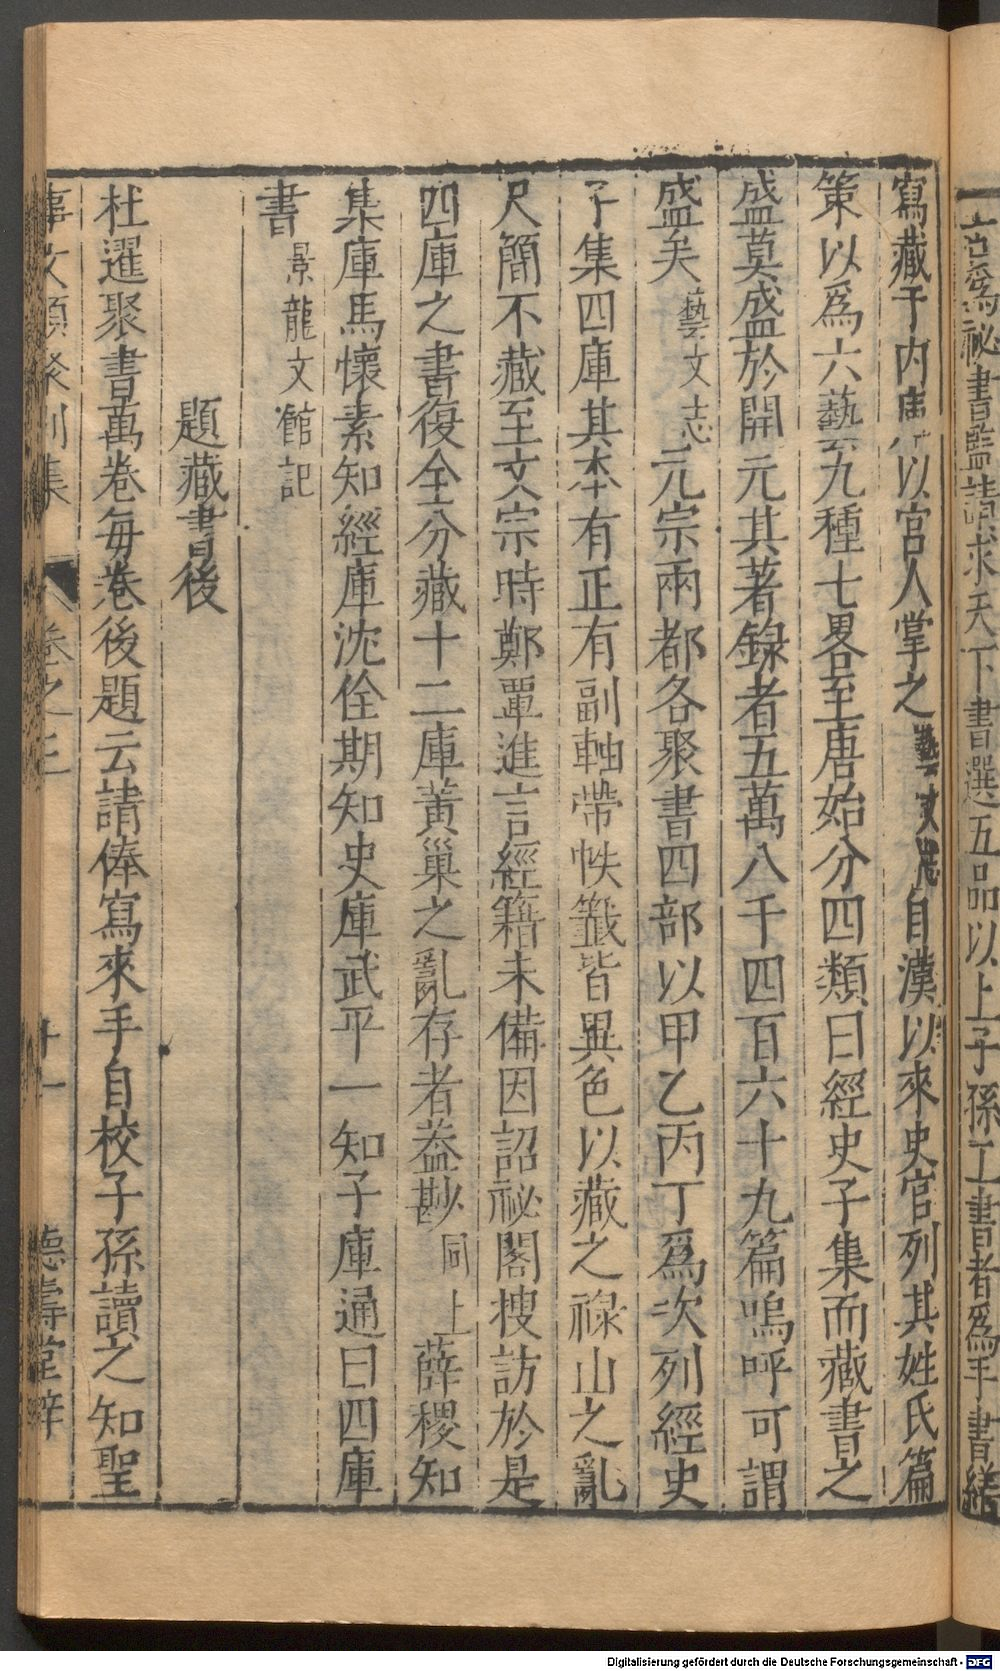 爲祕書監請求天下書選五品以上子孫工書者爲手書繕
寫藏于内庫以宮人掌之藝文志自漢以來史官列其姓氏篇
策以爲六藝九種七畧至唐始分四類曰經史子集而藏書之
盛莫盛於開元其著錄者五萬八千四百六十九篇嗚呼可謂
盛矣藝文志元宗兩都各聚書四部以甲乙丙丁爲次列經史
子集四庫其夲有正有副軸帶帙籤皆異色以藏之祿山之亂
尺簡不藏至文宗時鄭覃進言經籍未備因詔祕閣搜訪於是
四庫之書復全分藏十二庫黃巢之亂存者葢尠同上薛稷知
集庫馬懷素知經庫沈佺期知史庫武平一知子庫通曰四庫
書景龍文館記
題藏書後
杜暹聚書萬卷每卷後題云請俸寫來手自校子孫讀之知聖
事文類聚别集
卷之三
十一
德壽堂梓
Digitalisierung gefördert durch die Deutsche Forschungsgemeinschaft - DFG